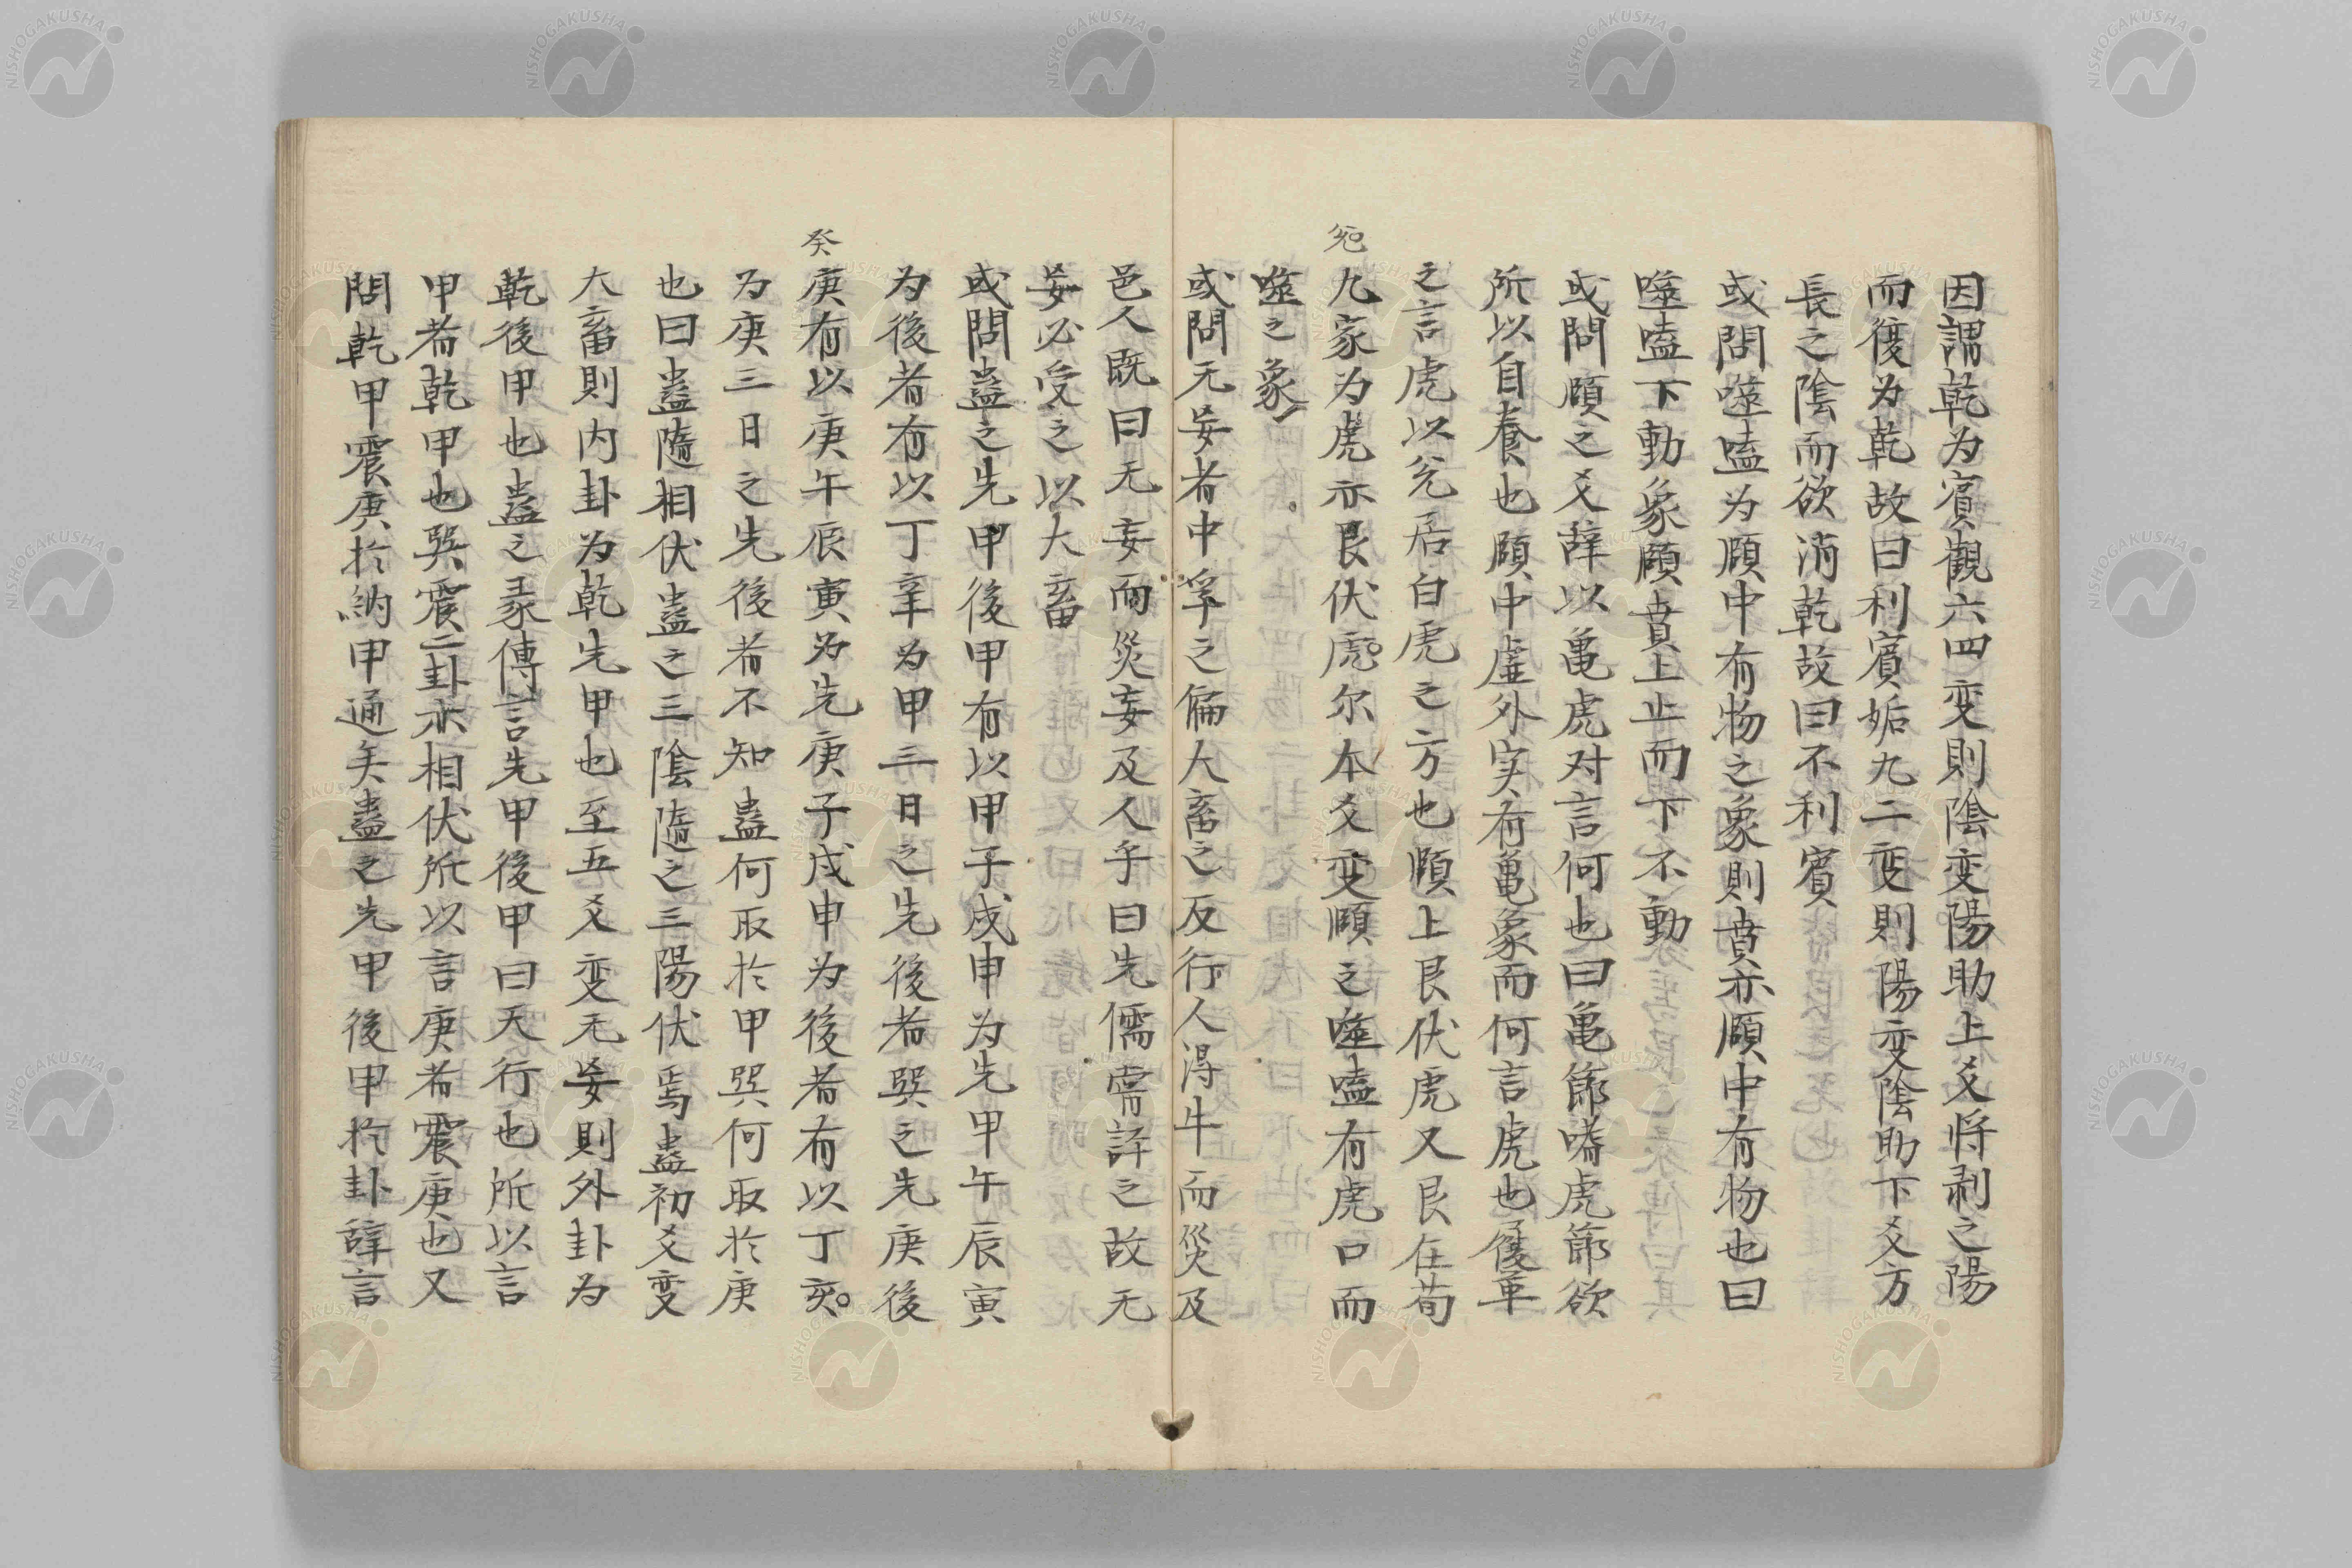 因謂乾为賔觀六四変則陰変陽助上爻将剥之陽
而復为乾故曰利賔姤九二変則陽変陰助下爻方
長之陰而欲消乾故曰不利賔
或問噬嗑为頤中有物之象則賁亦頤中有物也曰
噬嗑下動象頤賁上止而下不動
或問頤之爻辞以亀虎对言何也曰亀節嗜虎節欲
所以自養也頤中虗外实有亀象而何言虎也履革
之言虎以兊居白虎之方也頤上艮伏虎又艮在荀
兊
九家为虎亦艮伏虎尔本爻変頤之噬嗑有虎口而
噬之象
或問无妄者中孚之偏大畜之反行人淂牛而災及
邑人既曰无妄而災妄及人乎曰先儒嘗詳之故无
妄必受之以大畜
或問蠱之先甲後甲有以甲子戌申为先甲午辰寅
为後者有以丁辛为甲三日之先後者巽之先庚後
癸
庚有以庚午辰寅为先庚子戌申为後者有以丁亥
为庚三日之先後者不知蠱何取扵甲巽何取扵庚
也曰蠱隨相伏蠱之三陰隨之三陽伏焉蠱初爻変
大畜則内卦为乾先甲也至五爻変无妄則外卦为
乾後甲也蠱之彖傳言先甲後甲曰天行也所以言
甲者乾甲也巽震二卦亦相伏所以言庚者震庚也又
問乾甲震庚扵納甲通矣蠱之先甲後甲扵卦辞言
NISHOGAKUSHA